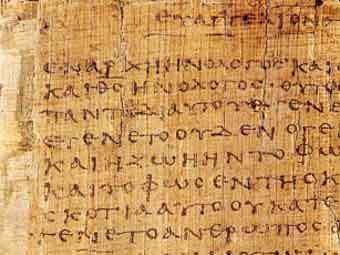 ΕΥΑΓΓΕΛΙΟΝ
ΕΝΑΡΧΗΗΝΟΛΟΓΟϹΚΑΙΟ
ΚΑΙΘϹΗΝΟΛΟΓΟϹ·ΟΥΤΟ
ΠΑΝΤΑΔΙΑΥΤΟΥΕΓΕΝΕ
ΕΓΕΝΕΤΟΟΥΔΕΝΟΓΕ
ΚΑΙΗΖΩΗΗΝΤΟΦ
ΚΑΙΤΟΦΩϹΕΝΤΗϹΚ
ϹΚΟΤΙΑΑΥΤΟΟΥΚΑΤΕ
ΓΕΝΕΤΟΑΝΘΡΩΠΟϹ